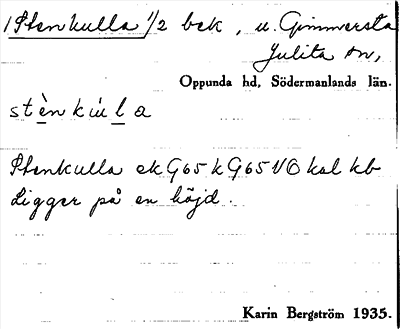 1 Stenkulla 1/2 bek, u. Gimmersta
Julita sn,
Oppunda hd, Södermanlands län.
stènkùla
Stenkulla ek G65 k G65 VO kal kb
Ligger på en höjd.
Karin Bergström 1935.